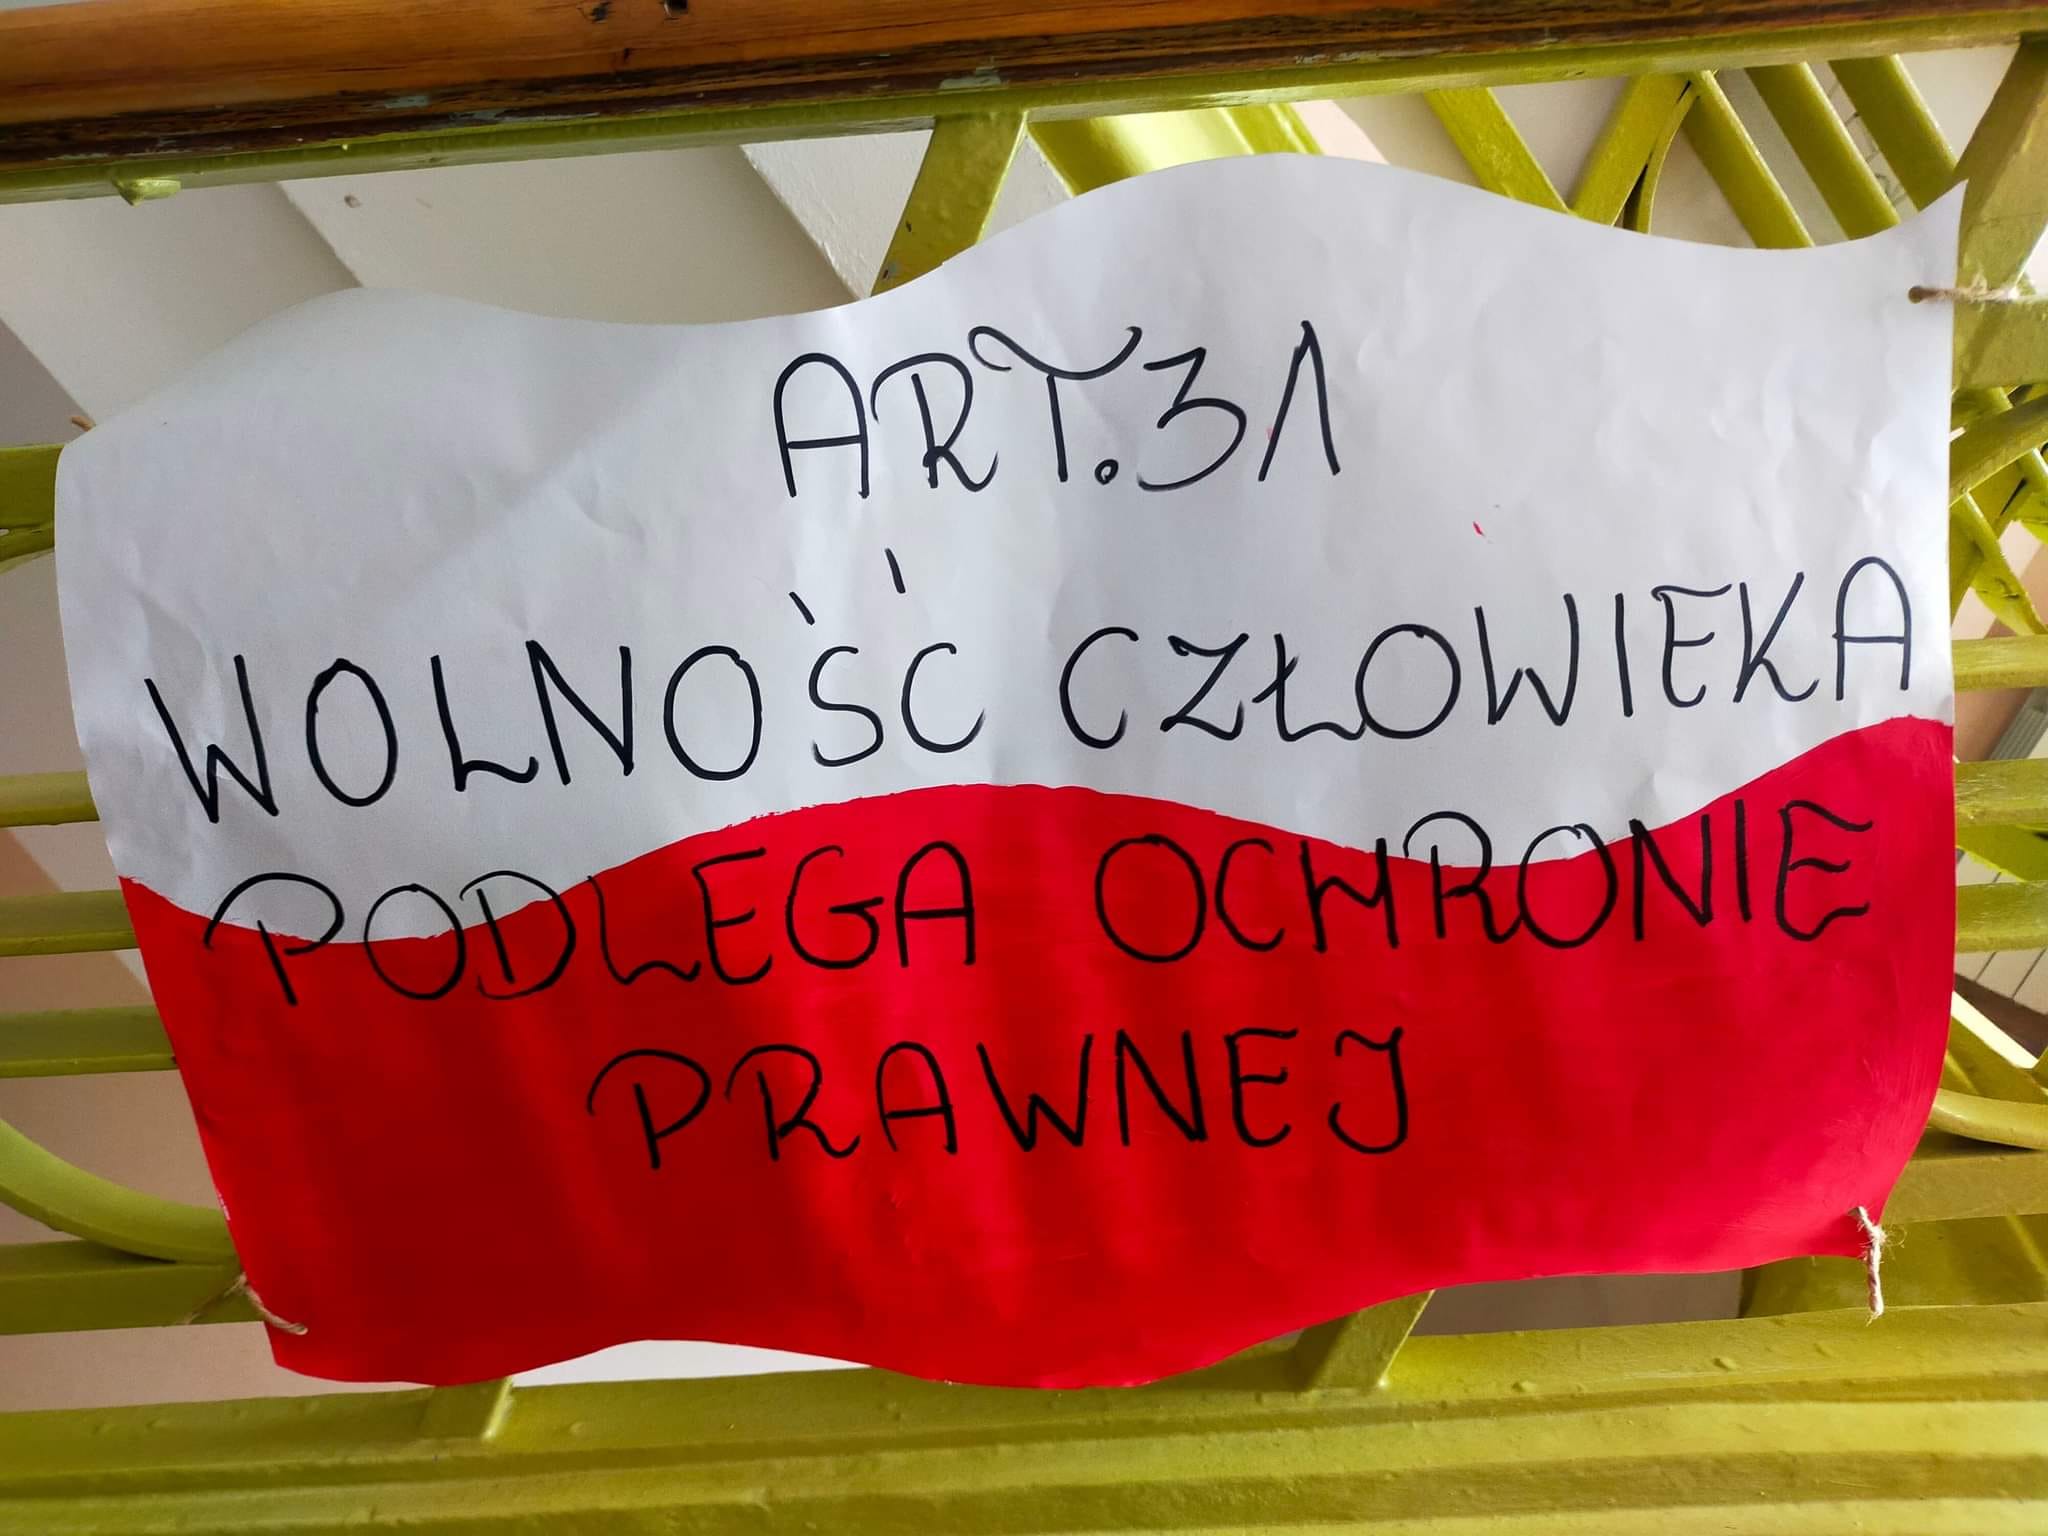 ART. 31
WOLNOŚĆ CZŁOWIEKA
PODLEGA OCHRONIE
PRAWNEJ